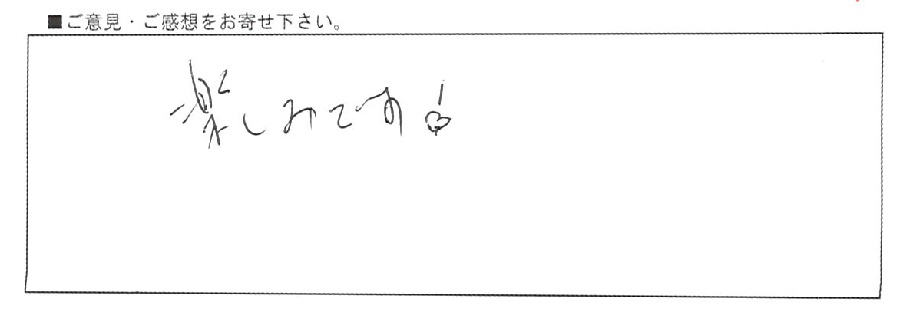 ■ご意見・ご感想をお寄せ下さい。
楽しみです!